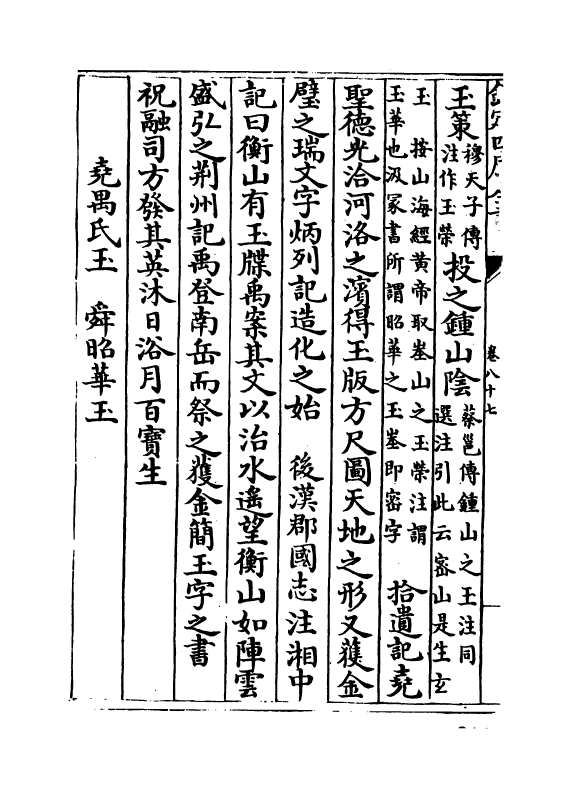 卷八十七
玉策穆天子傳注作玉榮投之鍾山陰蔡邕傳鍾山之玉注同選注引此云密山是生玄
玉 按山海經黄帝取峚山之玉榮注謂玉華也汲冢書所謂昭華之玉峚即密字 拾遺記堯
聖德光洽河洛之濱得玉版方尺圖天地之形又獲金
璧之瑞文字炳列記造化之始 後漢郡國志注湘中
記曰衡山有玉牒禹案其文以治水遙望衡山如陣雲
盛弘之荆州記禹登南岳而祭之獲金簡玉字之書
祝融司方發其英沐日浴月百寳生
堯禺氏玉 舜昭華玉